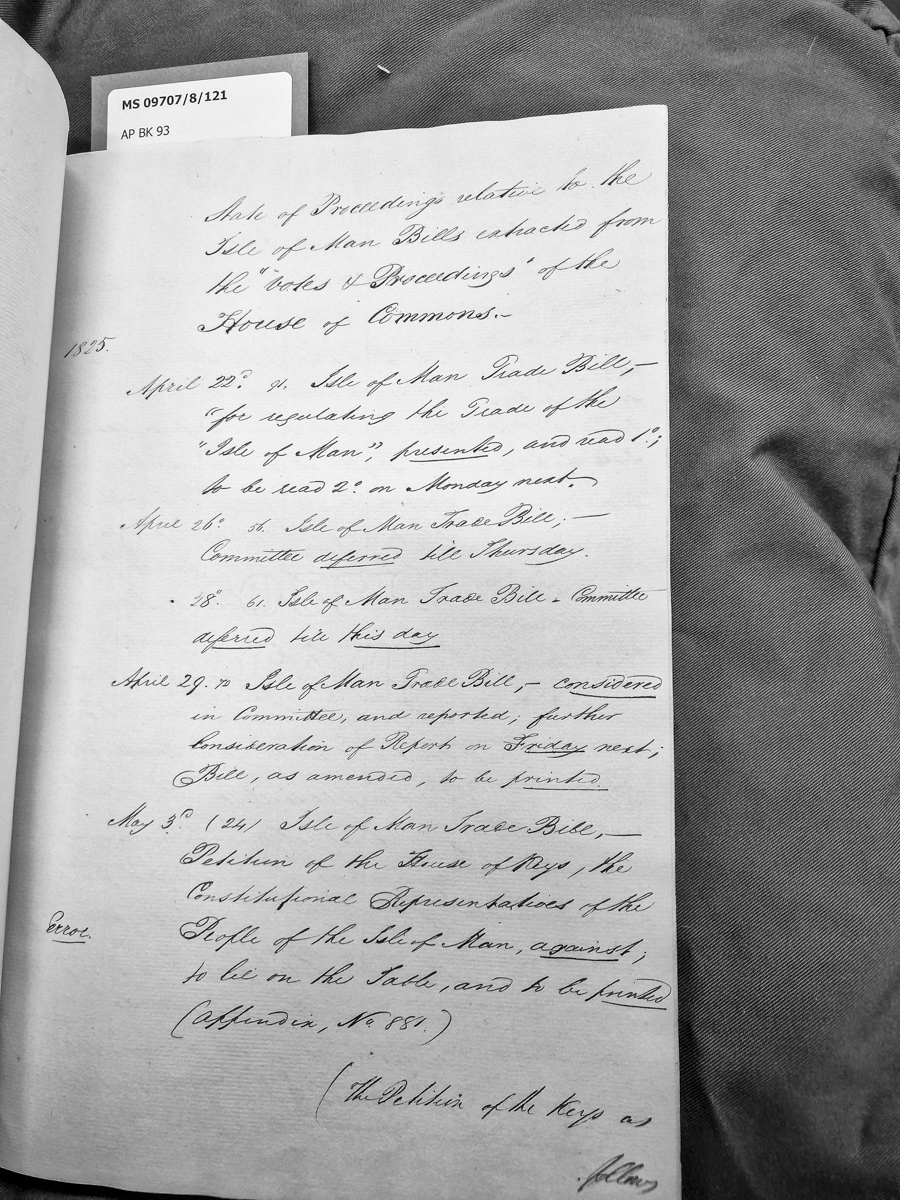 MS 09707/8/121
AP BK 93
State of Proceedings relative to the
Isle of Man Bills extracted from
the "Votes & Proceedings" of the
House of Commons.-
1825.
April 22d. 91. Isle of Man Trade Bill,-
"for regulating the Trade of the
"Isle of Man", presented, and read 1o;
to be read 2o. on Monday next.
April 26o. 56. Isle of Man Trade Bill; -
Committee deferred till Thursday.
28o. 61. Isle of Man Trade Bill - Committee
deferred till this day
April 29. 70 Isle of Man Trade Bill,- considered
in Committee, and reported; further
Consideration of Report on Friday next;
Bill, as amended, to be printed.
May 3d. (24) Isle of Man Trade Bill,-
Petition of the House of Keys, the
Constitutional Representatives of the
Error. People of the Isle of Man, against;
to lie on the Table, and to be printed
(appendix, No 881.)
(The Petition of the Keys as
follows